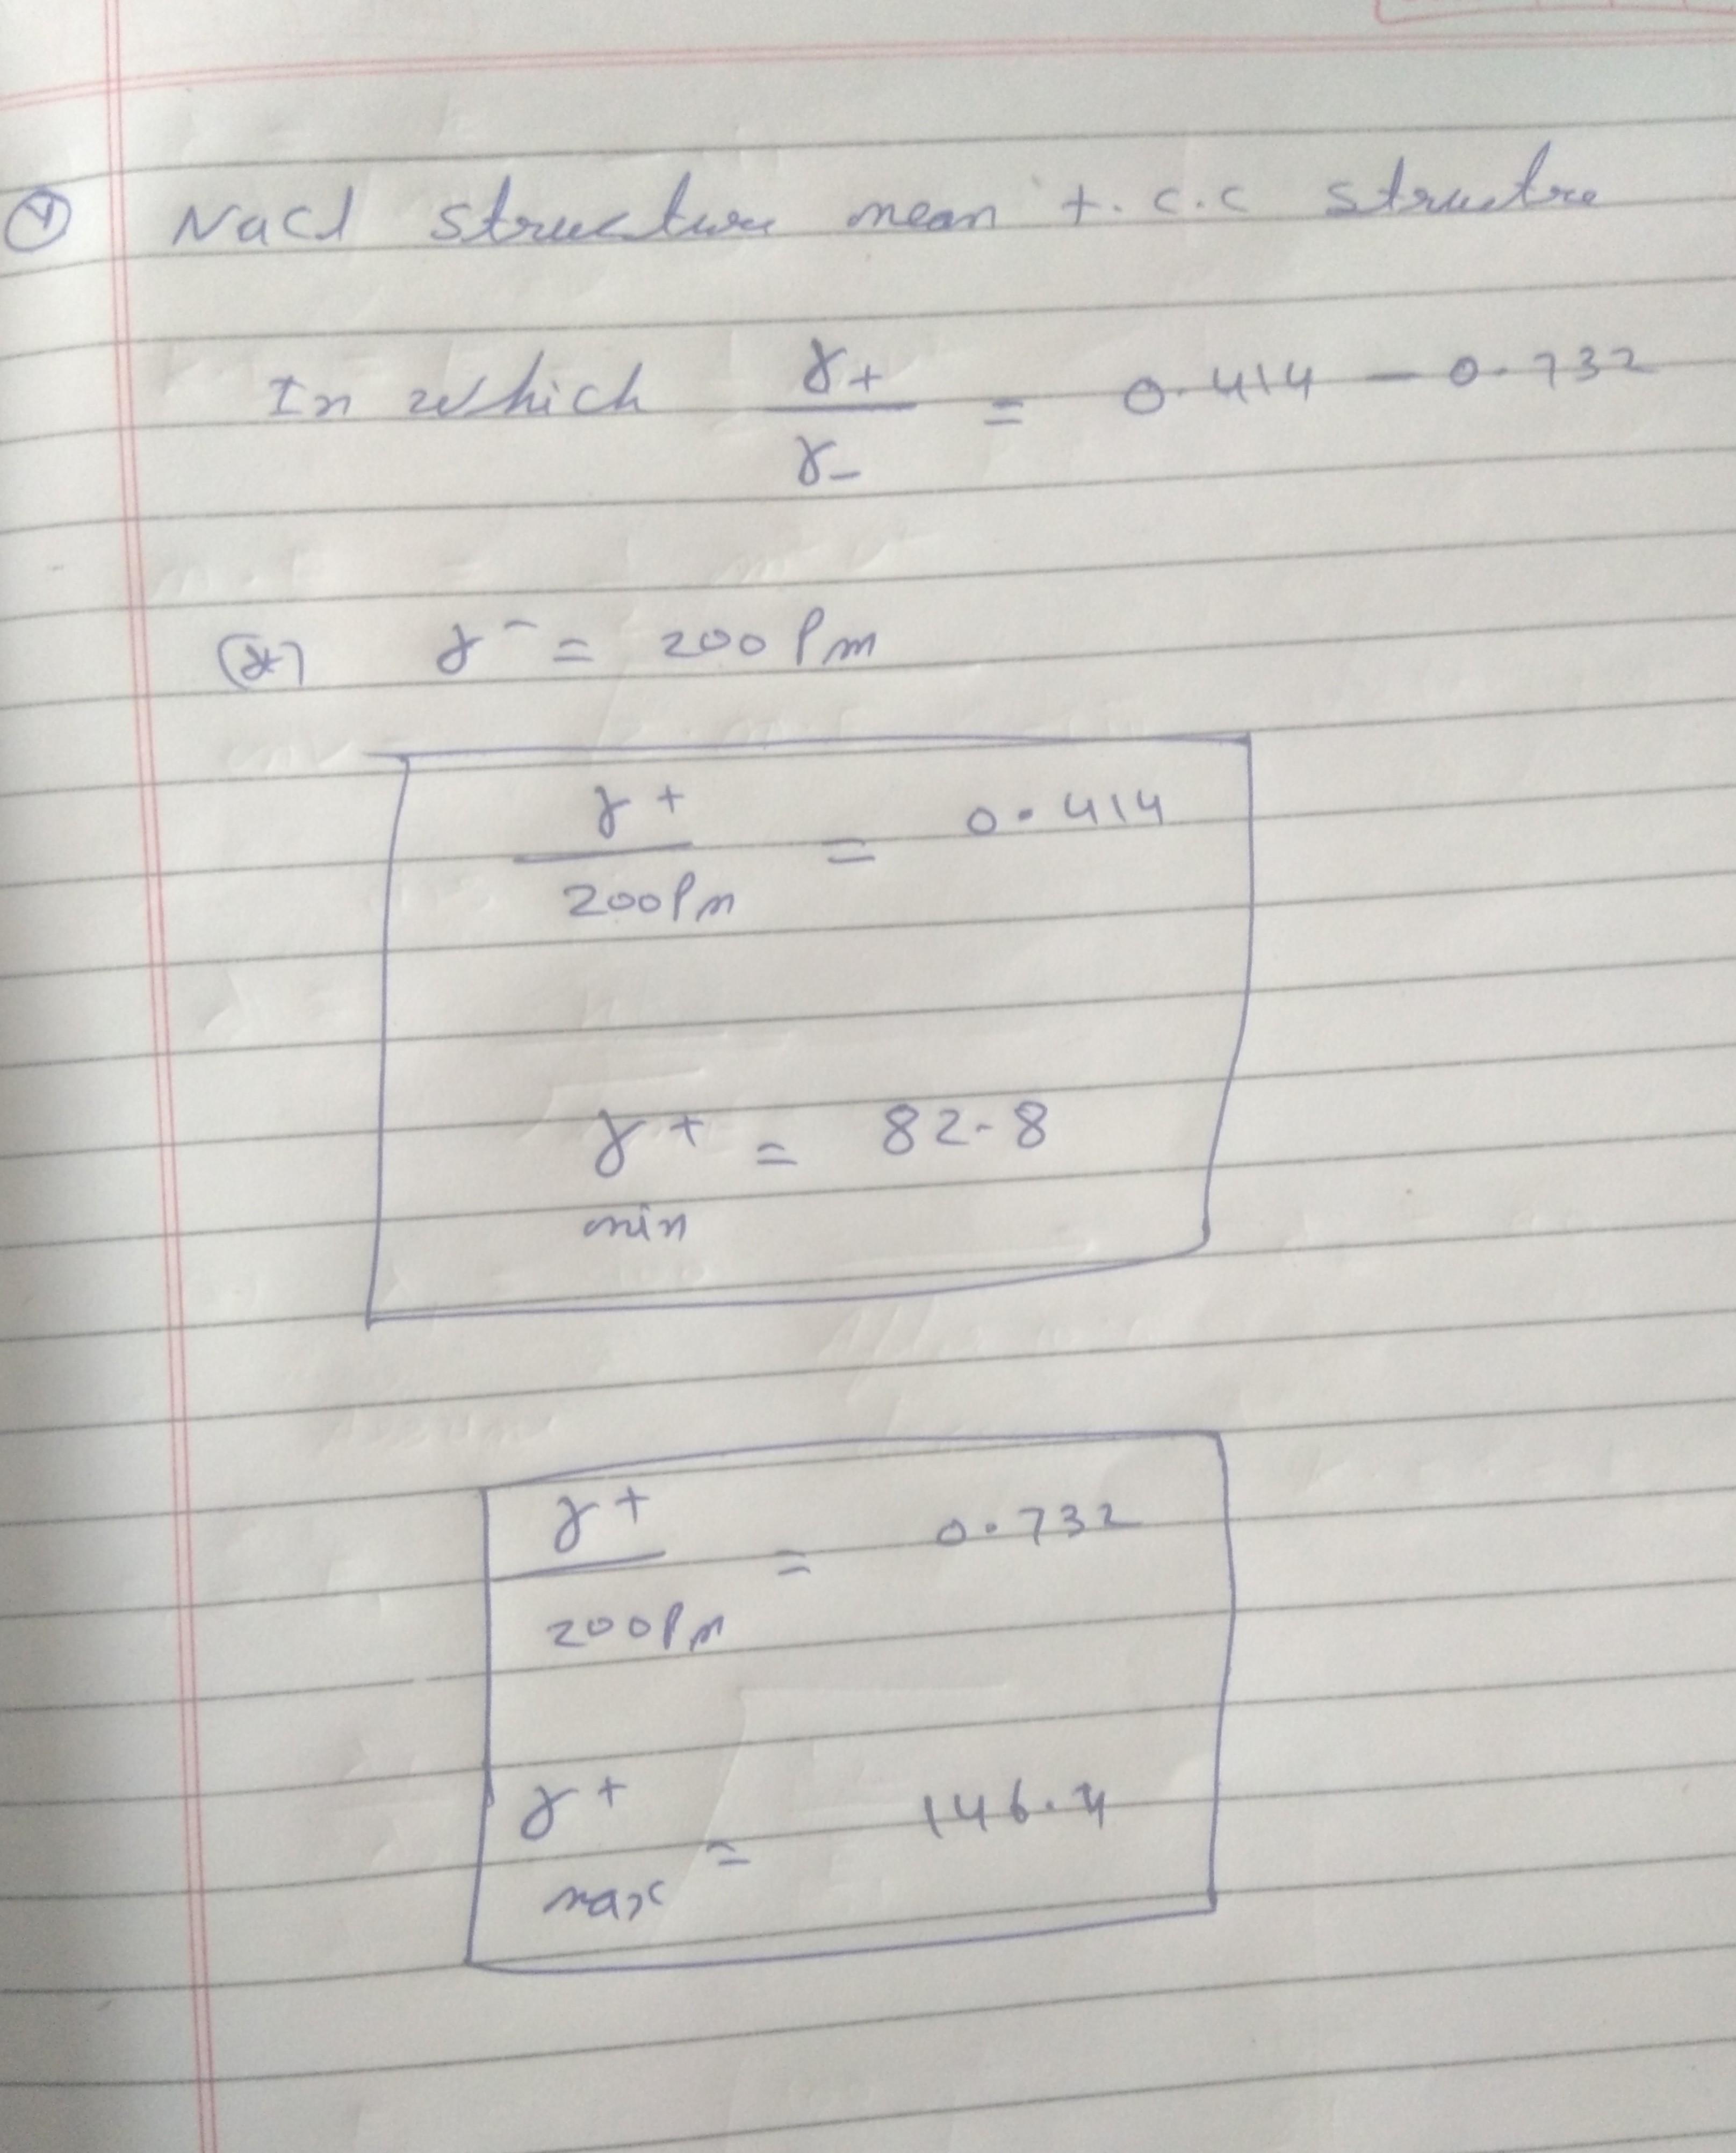 NaCl structure mean f.c.c structre
In which r+ / r- = 0.414 - 0.732
r- = 200 Pm
r+ / 200 Pm = 0.414
r+ min = 82.8
r+ / 200 Pm = 0.732
r+ max = 146.4